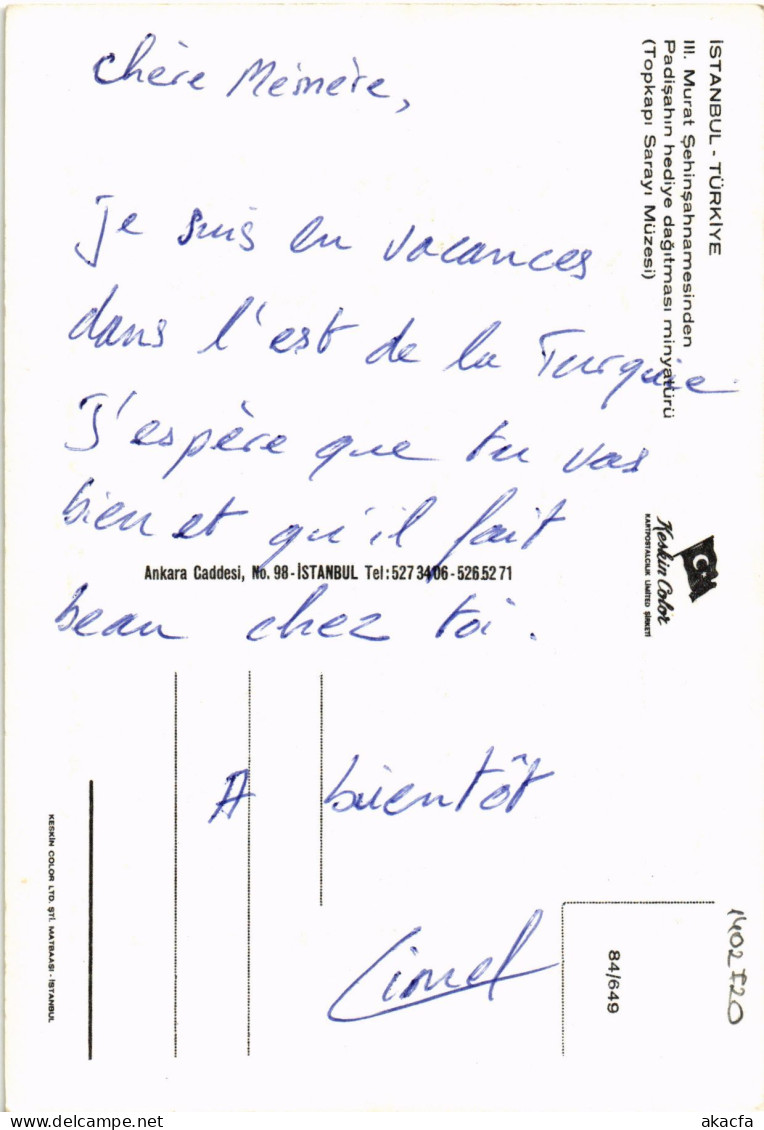 chère Mémère,
Je suis en vacances
dans l'est de la Turquie
J'espère que tu vas
bien et qu'il fait
beau chez toi.
A bientôt
Lionel
İSTANBUL - TÜRKİYE
III. Murat Şehinşahnamesinden
Padişahın hediye dağıtması minyatürü
(Topkapı Sarayı Müzesi)
Keskin Color
KARTPOSTALCILIK LİMİTED ŞİRKETİ
Ankara Caddesi, No. 98 - İSTANBUL Tel: 527 34 06 - 526 52 71
KESKİN COLOR LTD. ŞTİ. MATBAASI - İSTANBUL
84/649
1402720
akacfa